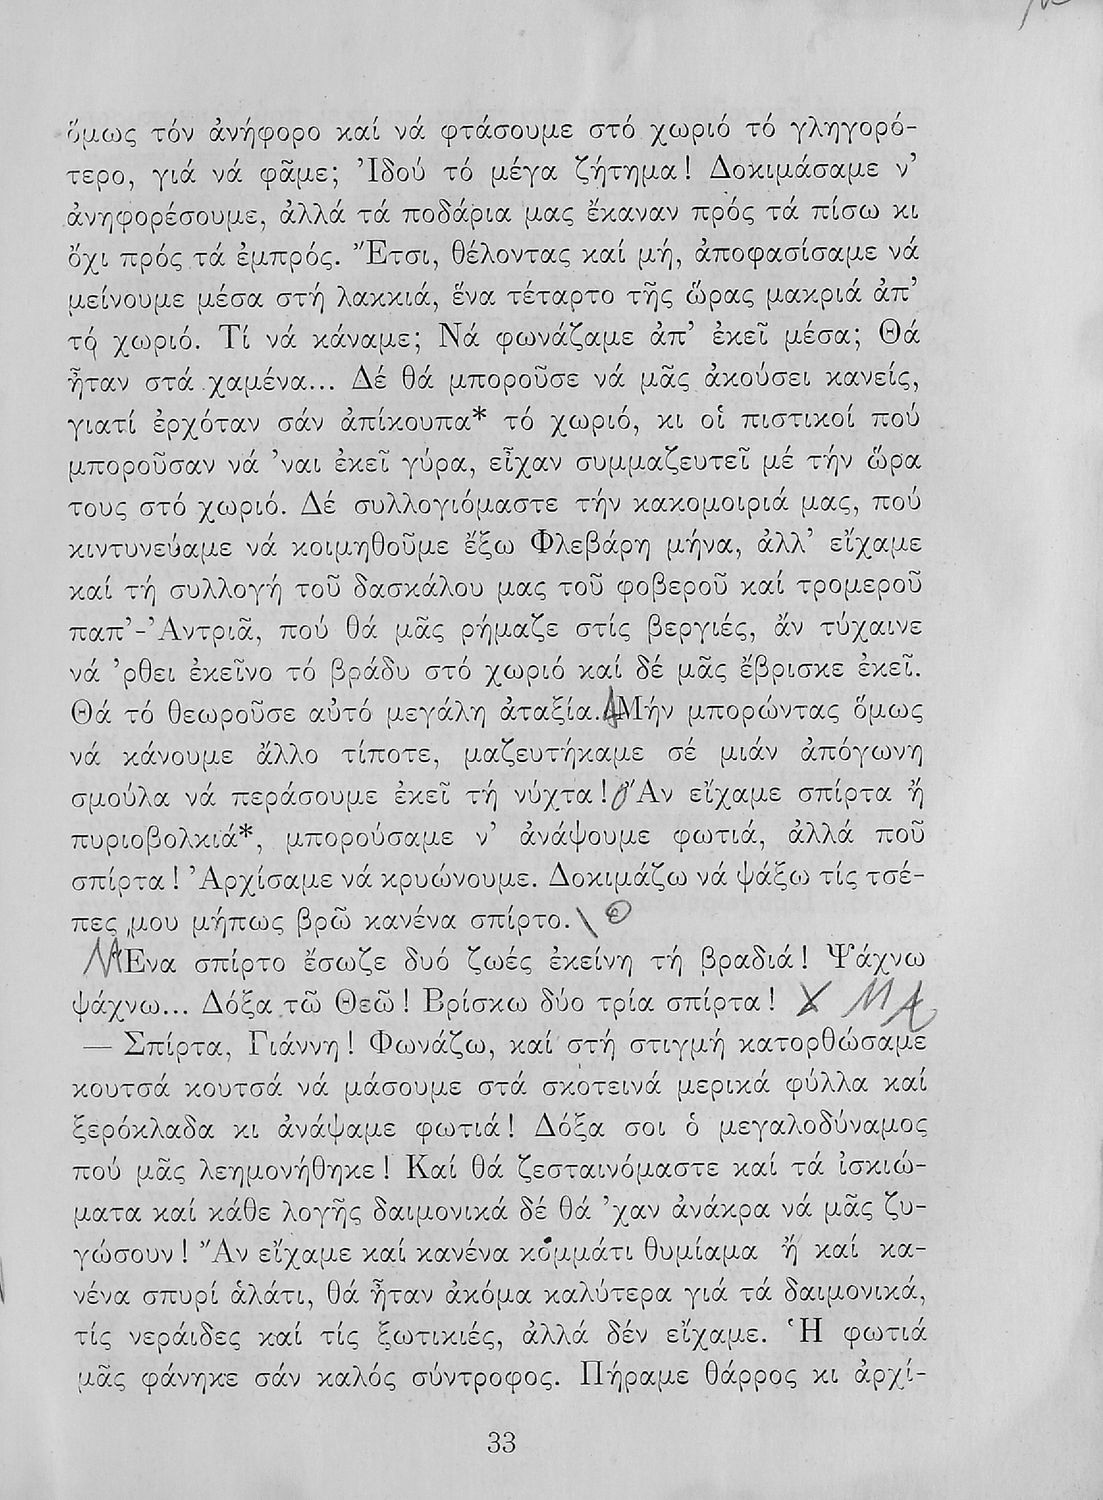 ὅμως τόν ἀνήφορο καί νά φτάσουμε στό χωριό τό γληγορό-
τερο, γιά νά φᾶμε; Ἰδού τό μέγα ζήτημα! Δοκιμάσαμε ν’
ἀνηφορέσουμε, ἀλλά τά ποδάρια μας ἔκαναν πρός τά πίσω κι
ὄχι πρός τά ἐμπρός. Ἔτσι, θέλοντας καί μή, ἀποφασίσαμε νά
μείνουμε μέσα στή λακκιά, ἕνα τέταρτο τῆς ὥρας μακριά ἀπ’
τό χωριό. Τί νά κάναμε; Νά φωνάζαμε ἀπ’ ἐκεῖ μέσα; Θά
ἦταν στά χαμένα... Δέ θά μποροῦσε νά μᾶς ἀκούσει κανείς,
γιατί ἐρχόταν σάν ἀπίκουπα* τό χωριό, κι οἱ πιστικοί πού
μποροῦσαν νά ’ναι ἐκεῖ γύρα, εἶχαν συμμαζευτεῖ μέ τήν ὥρα
τους στό χωριό. Δέ συλλογιόμαστε τήν κακομοιριά μας, πού
κιντυνεύαμε νά κοιμηθοῦμε ἔξω Φλεβάρη μήνα, ἀλλ’ εἴχαμε
καί τή συλλογή τοῦ δασκάλου μας τοῦ φοβεροῦ καί τρομεροῦ
παπ’-Ἀντριᾶ, πού θά μᾶς ρήμαζε στίς βεργιές, ἄν τύχαινε
νά ’ρθει ἐκεῖνο τό βράδυ στό χωριό καί δέ μᾶς ἔβρισκε ἐκεῖ.
Θά τό θεωροῦσε αὐτό μεγάλη ἀταξία. Μήν μπορώντας ὅμως
νά κάνουμε ἄλλο τίποτε, μαζευτήκαμε σέ μιάν ἀπόγωνη
σμούλα νά περάσουμε ἐκεῖ τή νύχτα! Ἄν εἴχαμε σπίρτα ἤ
πυριοβολκιά*, μπορούσαμε ν’ ἀνάψουμε φωτιά, ἀλλά ποῦ
σπίρτα! Ἀρχίσαμε νά κρυώνουμε. Δοκιμάζω νά ψάξω τίς τσέ-
πες μου μήπως βρῶ κανένα σπίρτο.
Ἕνα σπίρτο ἔσωζε δυό ζωές ἐκείνη τή βραδιά! Ψάχνω
ψάχνω... Δόξα τῶ Θεῶ! Βρίσκω δύο τρία σπίρτα!
— Σπίρτα, Γιάννη! Φωνάζω, καί στή στιγμή κατορθώσαμε
κουτσά κουτσά νά μάσουμε στά σκοτεινά μερικά φύλλα καί
ξερόκλαδα κι ἀνάψαμε φωτιά! Δόξα σοι ὁ μεγαλοδύναμος
πού μᾶς λεημονήθηκε! Καί θά ζεσταινόμαστε καί τά ἰσκιώ-
ματα καί κάθε λογῆς δαιμονικά δέ θά ’χαν ἀνάκρα νά μᾶς ζυ-
γώσουν! Ἄν εἴχαμε καί κανένα κομμάτι θυμίαμα ἤ καί κα-
νένα σπυρί ἁλάτι, θά ἦταν ἀκόμα καλύτερα γιά τά δαιμονικά,
τίς νεράιδες καί τίς ξωτικιές, ἀλλά δέν εἴχαμε. Ἡ φωτιά
μᾶς φάνηκε σάν καλός σύντροφος. Πήραμε θάρρος κι ἀρχί-
33